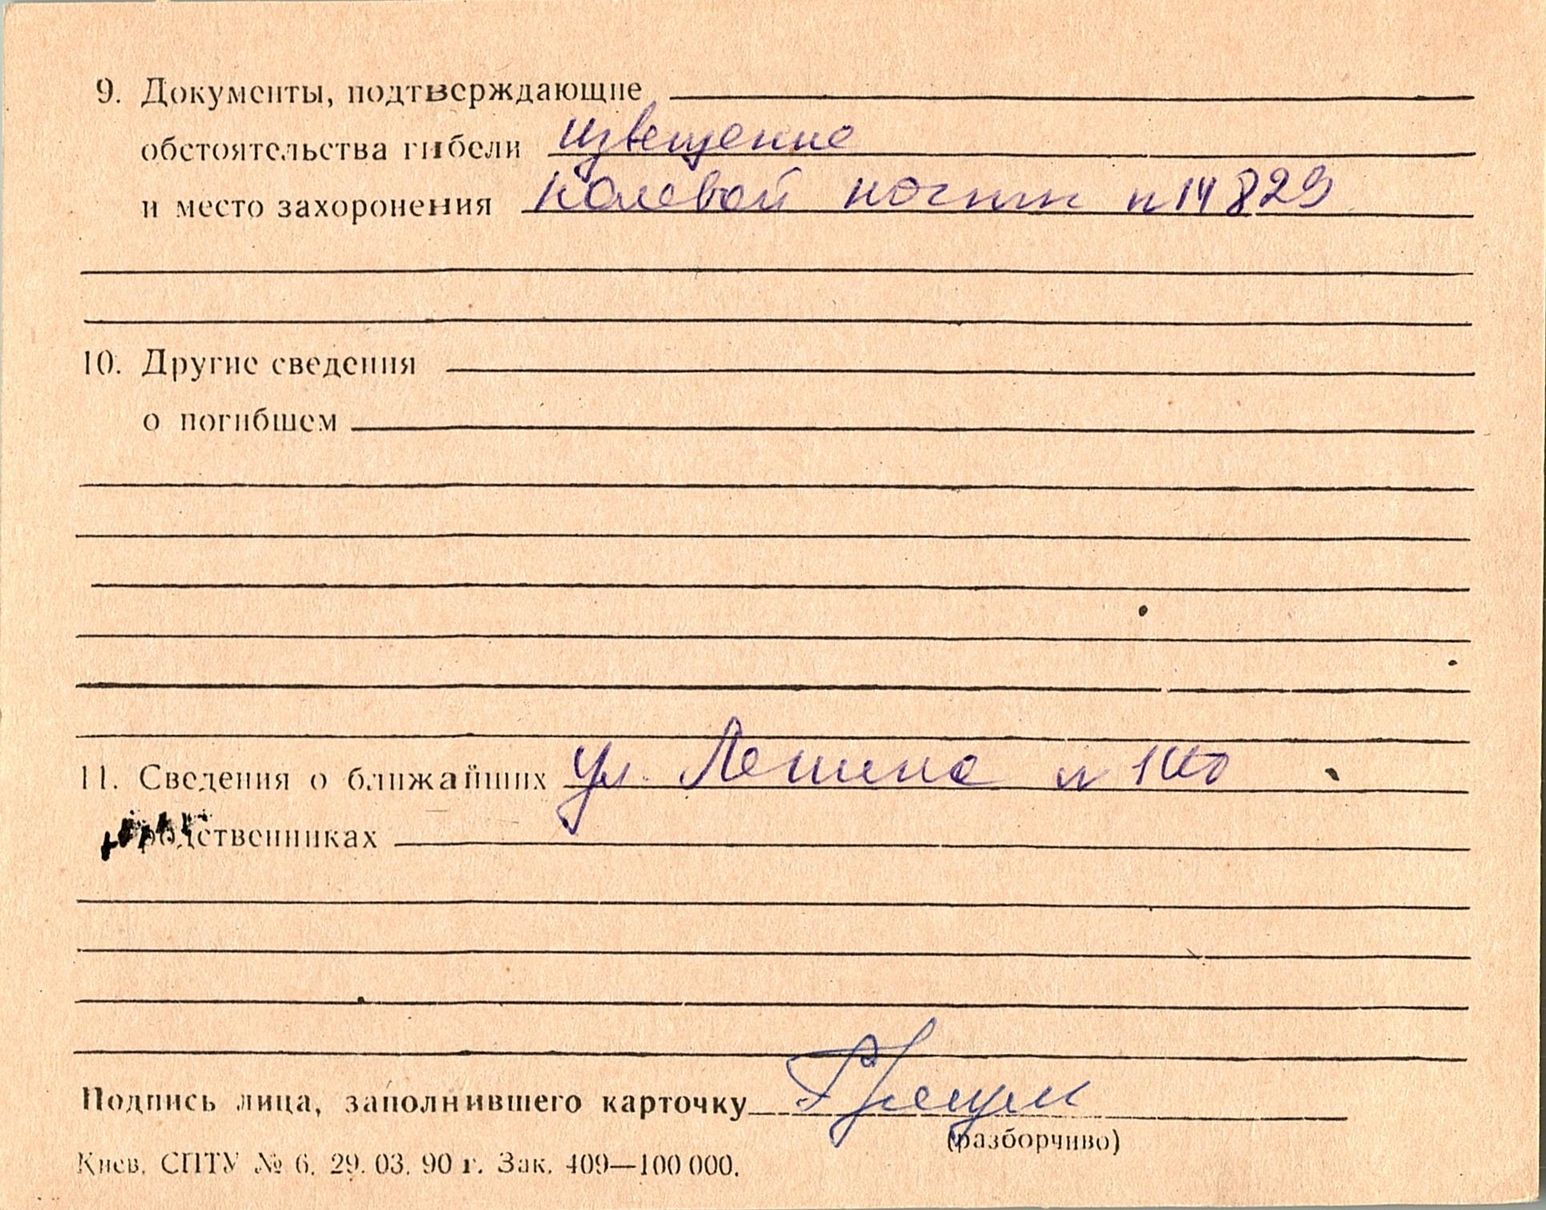 9. Документы, подтверждающие
обстоятельства гибели извещение
и место захоронения полевой почты n 14829
10. Другие сведения
о погибшем
11. Сведения о ближайших ул. Ленина n
родственниках
Подпись лица, заполнившего карточку
(разборчиво)
Киев. СПТУ № 6. 29. 03. 90 г. Зак. 409—100 000.